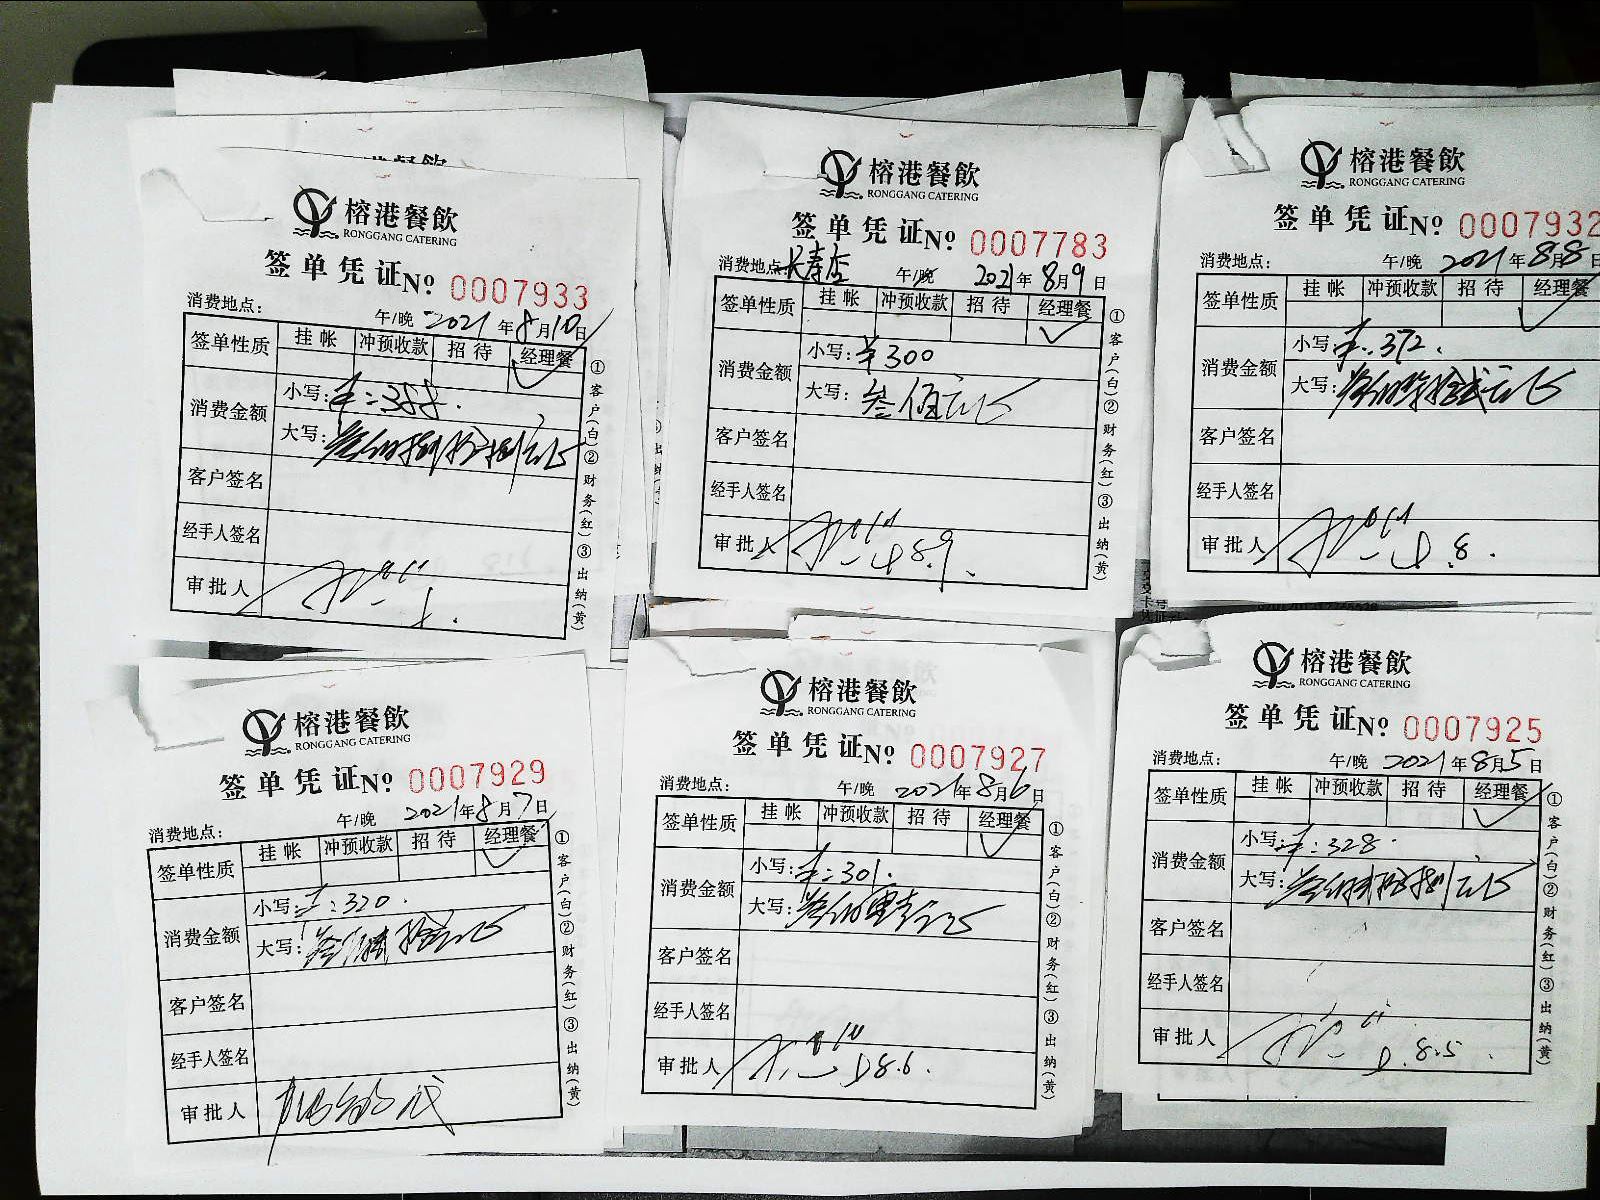 榕港餐飲
RONGGANG CATERING
签单凭证№ 0007933
消费地点: 午/晚 2021年8月10日
签单性质 挂帐 冲预收款 招待 经理餐
消费金额 小写:¥:388.
大写:叁佰捌拾捌元正
客户签名
经手人签名
审批人
①客户(白)②财务(红)③出纳(黄)
榕港餐飲
RONGGANG CATERING
签单凭证№ 0007783
消费地点 长寿店 午/晚 2021年8月9日
签单性质 挂帐 冲预收款 招待 经理餐
消费金额 小写:¥300
大写:叁佰元正
客户签名
经手人签名
审批人 8.9.
①客户(白)②财务(红)③出纳(黄)
榕港餐飲
RONGGANG CATERING
签单凭证№ 0007932
消费地点: 午/晚 2021年8月8日
签单性质 挂帐 冲预收款 招待 经理餐
消费金额 小写:¥:372.
大写:叁佰柒拾贰元正
客户签名
经手人签名
审批人 8.
榕港餐飲
RONGGANG CATERING
签单凭证№ 0007929
消费地点: 午/晚 2021年8月7日
签单性质 挂帐 冲预收款 招待 经理餐
消费金额 小写:¥:320.
大写:叁佰贰拾元正
客户签名
经手人签名
审批人
①客户(白)②财务(红)③出纳(黄)
榕港餐飲
RONGGANG CATERING
签单凭证№ 0007927
消费地点: 午/晚 2021年8月6日
签单性质 挂帐 冲预收款 招待 经理餐
消费金额 小写:¥:301.
大写:叁佰零壹元正
客户签名
经手人签名
审批人 8.6.
①客户(白)②财务(红)③出纳(黄)
榕港餐飲
RONGGANG CATERING
签单凭证№ 0007925
消费地点: 午/晚 2021年8月5日
签单性质 挂帐 冲预收款 招待 经理餐
消费金额 小写:¥:328.
大写:叁佰贰拾捌元正
客户签名
经手人签名
审批人 8.5.
①客户(白)②财务(红)③出纳(黄)